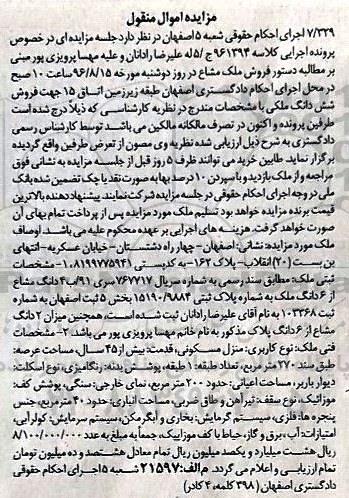 مزایده اموال منقول
۷/۳۳۹ اجرای احکام حقوقی شعبه ۵ اصفهان در نظر دارد جلسه مزایده ای در خصوص
پرونده اجرایی کلاسه ۹۶۱۳۹۴ ج/۵ له علیرضا رادانان و علیه مهسا پرویزی پور مبنی
بر مطالبه دستور فروش ملک مشاع در روز دوشنبه مورخه ۹۶/۸/۱۵ ساعت ۱۰ صبح
در محل اجرای احکام دادگستری اصفهان طبقه زیرزمین اتاق ۱۵ جهت فروش
شش دانگ ملکی با مشخصات مندرج در نظریه کارشناسی که ذیلا درج شده است
طرفین پرونده و اکنون در تصرف مالکانه مالکین می باشد توسط کارشناس رسمی
دادگستری به شرح ذیل ارزیابی شده نظریه وی مصون از تعرض طرفین واقع گردیده
برگزار نماید. طالبین خرید می توانند ظرف ۵ روز قبل از جلسه مزایده به نشانی فوق
مراجعه و از ملک بازدید و با سپردن ۱۰ درصد بها به صورت نقد یا چک تضمین شده بانک
ملی در وجه اجرای احکام حقوقی در جلسه مزایده شرکت نمایند. پیشنهاد دهنده بالاترین
قیمت برنده مزایده خواهد بود تسلیم ملک مورد مزایده پس از پرداخت تمام بهای آن
صورت خواهد گرفت. هزینه های اجرایی بر عهده محکوم علیه می باشد. اوصاف
ملک مورد مزایده: نشانی: اصفهان-چهار راه دشتستان-خیابان عسکریه-انتهای
بن بست (۲۰) انقلاب-پلاک ۱۶۲- به کدپستی ۱-۸۱۹۹۷۷۵۹۴۱ مشخصات
ثبتی ملک: مطابق سند رسمی به شماره سریال ۷۶۷۷۱۷ سری ۹۱ الف ۴ دانگ مشاع
از ۶ دانگ ملک به شماره پلاک ثبتی ۱۵۱۹۰/۹۸۸۴ بخش ۵ ثبت اصفهان به شماره
ثبت ۱۰۳۳۶۸ به نام آقای علیرضا رادانان ثبت شده است، همچنین میزان ۲ دانگ
مشاع از ۶ دانگ پلاک مذکور به نام خانم مهسا پرویزی پور می باشد. ۲- مشخصات
فنی ملک: نوع کاربری: منزل مسکونی، قدمت: بیش از ۴۵ سال، مساحت عرصه:
طبق سند ۲۷۰ متر مربع، تعداد طبقه: ۱ طبقه، پوشش بدنه: رنگ آمیزی، نوع اسکلت:
دیوار باربر، مساحت اعیانی: حدود ۲۰۰ متر مربع، نمای خارجی: سنگی، پوشش کف:
موزائیک، نوع سقف: تیر آهن و طاق ضربی، مساحت انباری: حدود ۴۰ متر مربع، جنس
پنجره ها: فلزی، سیستم گرمایش: بخاری و آبگرمکن، سیستم سرمایش: کولر آبی،
امتیازات: آب، برق و گاز، حیاط با کف موزاییک، جمعا به مبلغ به عدد ۸/۱۰۰/۰۰۰/۰۰۰
ریال هشت میلیارد و یکصد میلیون ریال تمام معادل هشتصد و ده میلیون تومان
تمام ارزیابی و اعلام می گردد. م الف: ۲۱۵۹۷ شعبه ۵ اجرای احکام حقوقی
دادگستری اصفهان (۳۹۸ کلمه، ۴ کادر)